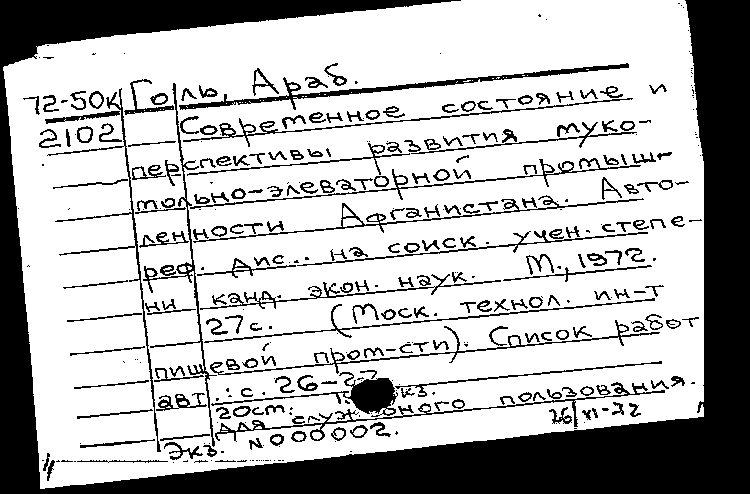 72-50к Голь, Араб.
2102 Современное состояние и
перспективы развития муко-
мольно-элеваторной промыш-
ленности Афганистана. Авто-
реф. дис... на соиск. учен. степе-
ни канд. экон. наук. М., 1972.
27с. (Моск. технол. ин-т
пищевой пром-сти). Список работ
авт.: с. 26-27
20см. кз.
Для служебного пользования.
Экз. N000002.
26/VI-72